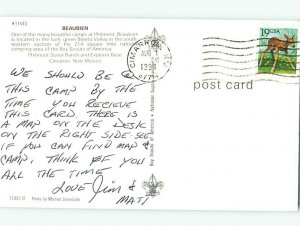 #11543
BEAUBIEN
One of the many beautiful camps at Philmont, Beaubien
is located in the lush, green Bonita Valley in the south-
western section of the 214 square mile national
camping area of the Boy Scouts of America.
Philmont Scout Ranch and Explorer Base
Cimarron, New Mexico
CIMARRON
AUG
19 USA
post card
WE SHOULD BE @
THIS CAMP BY THE
TIME YOU RECIEVE
THIS CARD. THERE IS
A MAP ON THE DESK
ON THE RIGHT SIDE - SEE
IF YOU CAN FIND MAP &
CAMP, THINK OF YOU
ALL THE TIME
LOVE Jim &
MATT
Photo by